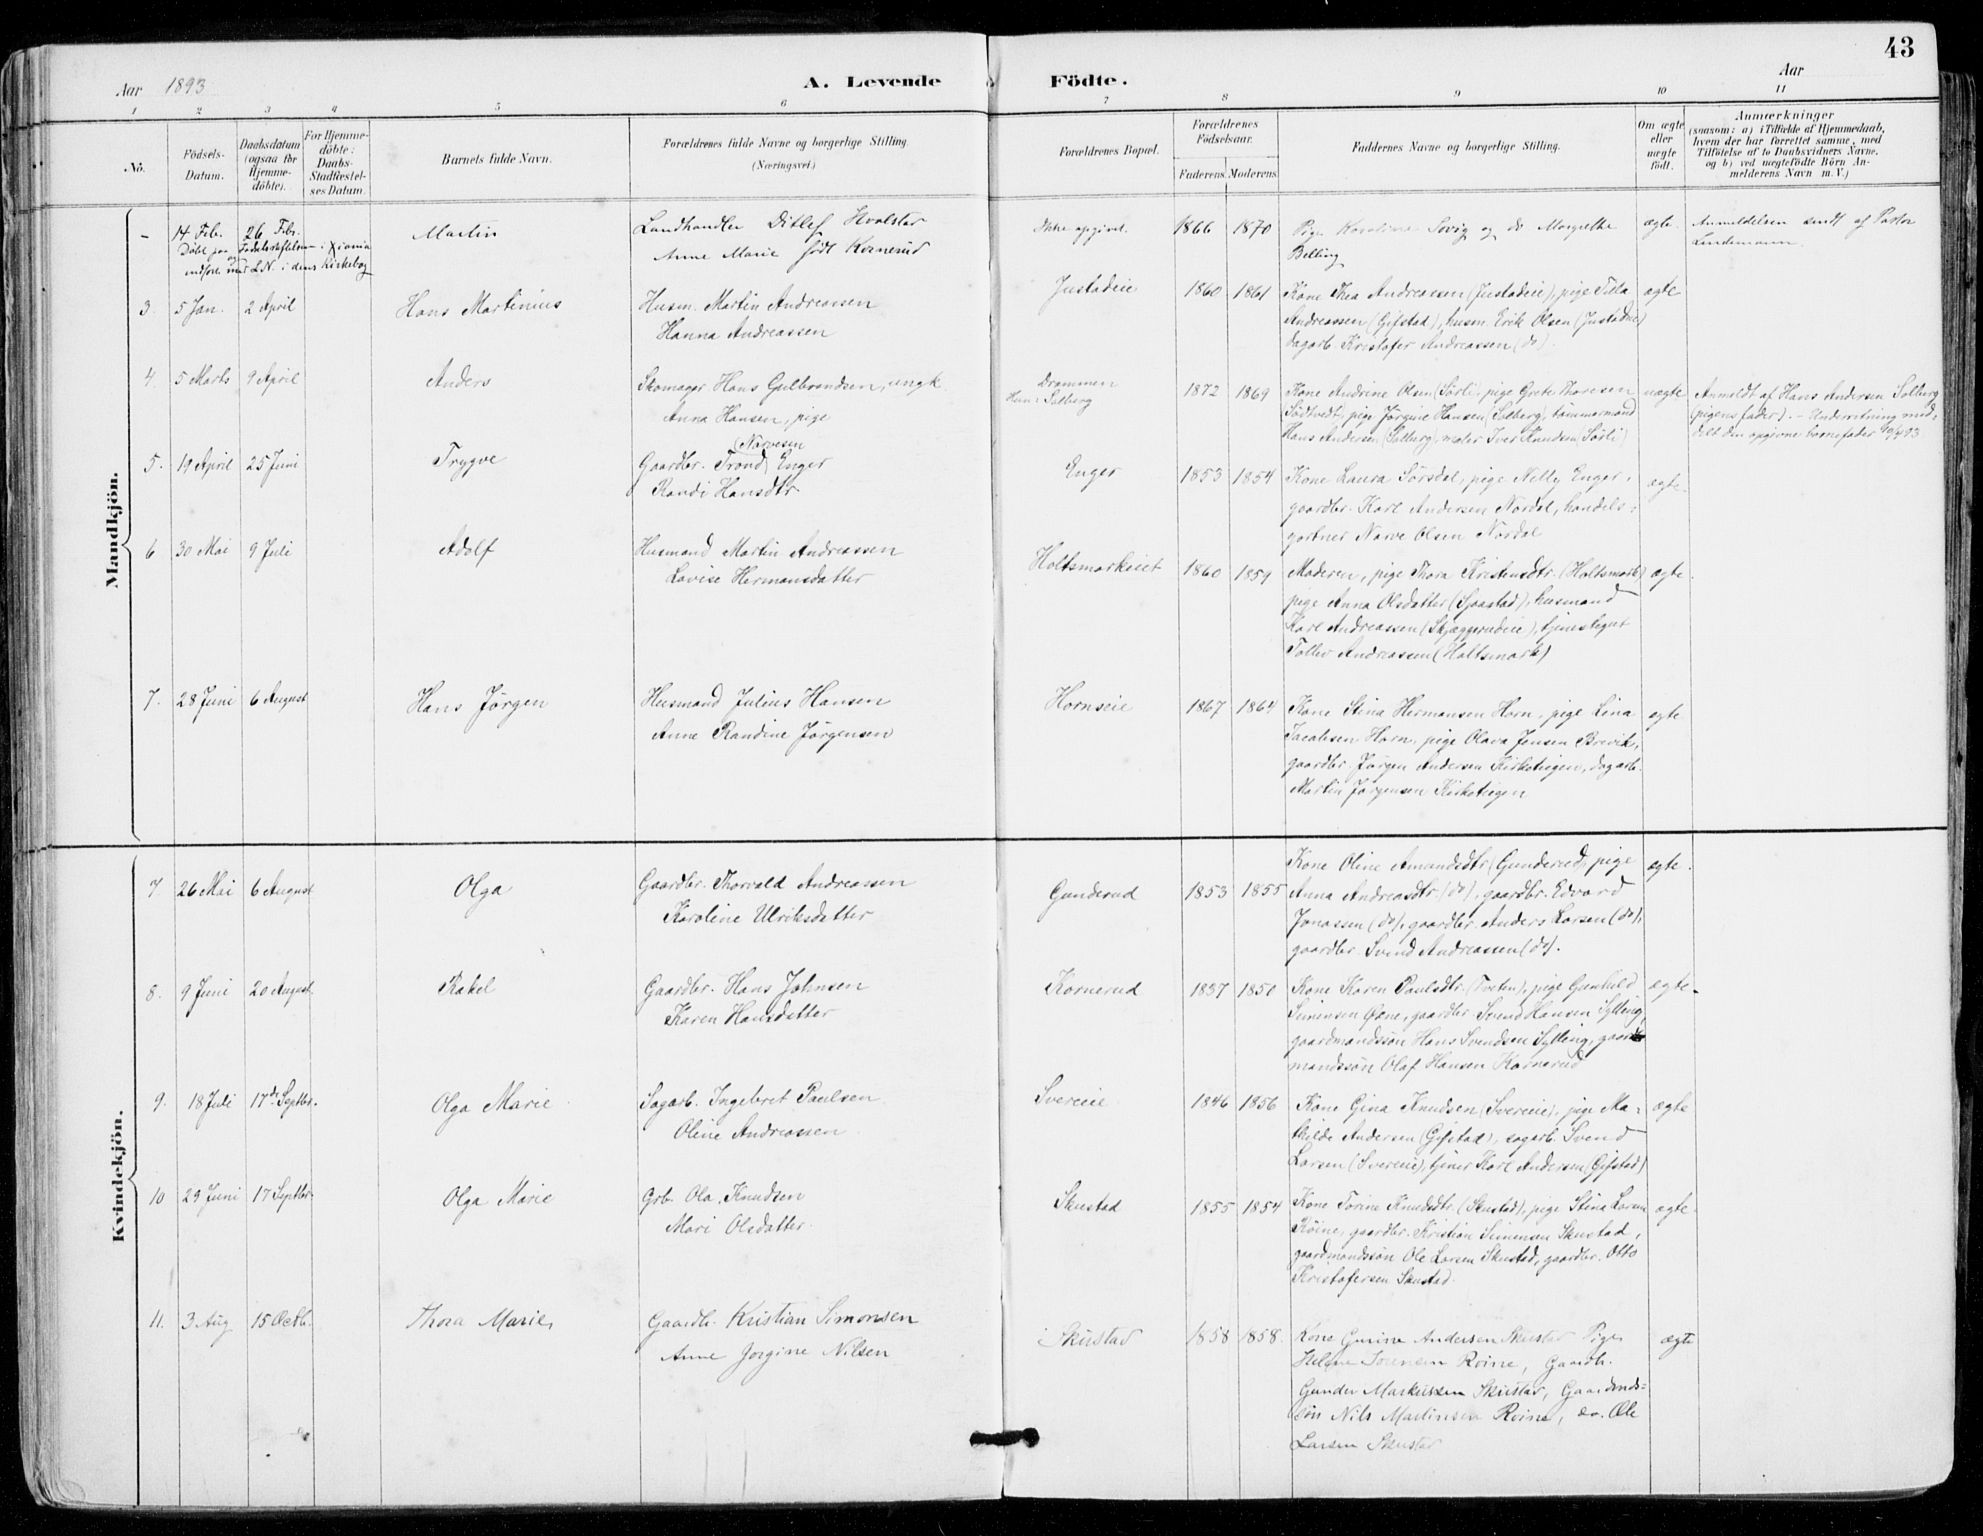 43
Aar 1893
A. Levende Födte.
Aar
1 2 3 4 5 6 7 8 9 10 11
No.
Födsels-Datum.
Daabsdatum (ogsaa for Hjemme-döbte).
For Hjemme-döbte: Daabs-Stadfæstel-ses Datum.
Barnets fulde Navn.
Forældrenes fulde Navne og borgerlige Stilling (Næringsvei.)
Forældrenes Bopæl.
Forældrenes Födselsaar.
Faderens. Moderens.
Faddernes Navne og borgerlige Stilling.
Om ægte eller uægte födt.
Anmærkninger
(saasom: a) i Tilfælde af Hjemmedaab,
hvem der har forrettet samme, med
Tilföielse af to Daabsvidners Navne,
og b) ved uægtefödte Börn An-
melderens Navn m. V.)
Mandkjön.
- 14 Feb. 26 Feb. Martin Landhandler Ditlef Hvalstar Ikke opgivet. 1866 1870 Pige Karoline Sovig og do Margrethe ægte. Anmeldelsen sendt af Pastor
Døbt paa Fødselsstiftelsen i Xiania Anne Marie født Kornerud Belling Lindemann.
og indført med L.N. i dens Kirkebog
3. 5 Jan. 2 April Hans Martinius Husm. Martin Andreassen Justadeie 1860 1861 Kone Thea Andreassen (Justadeie), pige Tilla ægte
Hanna Andreassen Andreassen (Gifstad), husm. Erik Olsen (Justadeie)
dagarb. Kristofer Andreassen (do).
4. 5 Marts 9 April Anders Skomager Hans Gulbrandsen, ungk. Drammen 1872 1869 Kone Andrine Olsen (Sørli), pige Grete Thoresen uægte Anmeldt af Hans Andersen Solberg
Anna Hansen, pige Hun: Solberg Sødtvedt, pige Jørgine Hansen (Solberg), tømmermand (pigens fader). - Underretning med-
Hans Andersen (Solberg), maler Iver Knudsen (Sørli) delt den opgivne barnefader 10/4 93
5. 19 April 25 Juni Trygve Gaardbr. Trond (Narvesen) Enger Enger 1853 1854 Kone Laura Sørsdal, pige Nilly Enger, ægte.
Randi Hansdtr. gaardbr. Karl Andersen Nordal, handels-
gartner Narve Olsen Nordal
6 30 Mai 9 Juli Adolf Husmand Martin Andreassen Holtsmarkeiet 1860 1859 Moderen, pige Thora Kristensdtr. (Holtsmark) ægte.
Lovise Hermansdatter pige Anna Olsdatter (Spaastad), husmand
Karl Andreassen (Skjæggerudeie), tjenestegut
Tollev Andreassen (Holtsmark)
7. 28 Juni 6 August Hans Jørgen Husmand Julius Hansen Hornseie 1867 1864 Kone Stina Hermansen Horn, pige Lina ægte
Anne Randine Jørgensen Jacobsen Horn, pige Olava Jensen Brevik,
gaardbr. Jørgen Andersen Kirketeigen, dagarb.
Martin Jørgensen Kirketeigen
Kvindekjön.
7. 26 Mai 6 August Olga Gaardbr. Thorvald Andreassen Gunderud 1853 1855 Kone Oline Amandsdtr. (Gunderud), pige ægte.
Karoline Ulriksdatter Anna Andreasdtr. (do), gaardbr. Edvard
Jonassen (do), gaardbr. Anders Larsen (do),
gaardbr. Svend Andreassen (do).
8. 9 Juni 20 August Rakel Gaardbr. Hans Johnsen Kornerud 1837 1850 Kone Karen Paulsdtr. (Tveten), pige Gunhild ægte.
Karen Hansdatter Simensen, gaardbr. Svend Hansen Sylling,
gaardmandssøn Hans Svendsen Sylling, gaard-
mandssøn Olaf Hansen Kornerud
9. 18 Juli 17de Septbr. Olga Marie Sagarb. Ingebret Paulsen Svereeie 1846 1856 Kone Gina Knudsen (Svereeie), pige Ma- ægte
Oline Andreassen thilde Andersen (Gifstad), sagarb. Svend
Larsen (Svereeie), tjener Karl Andersen (Gifstad)
10 29 Juni 17 Septbr. Olga Marie Grb. Ola Knudsen Skustad 1855 1854 Kone Torine Knudsdtr. (Skustad), pige Stina Larsen ægte.
Mari Olsdatter Røine, gaardbr. Kristian Simensen Skustad,
gaardmandssøn Ole Larsen Skustad, gaardbr. Otto
Kristofersen Skustad.
11. 3 Aug 15 Octb. Thora Marie Gaardb. Kristian Simonsen Skustad 1858 1858. Kone Gurine Andersen Skustad Pige ægte
Anne Jorgine Nilsen Helene Sørensen Roine, Gaardb.
Gunder Markussen Skustad, Gaardmds-
søn Nils Martinsen Roine, do. Ole
Larsen Skustad